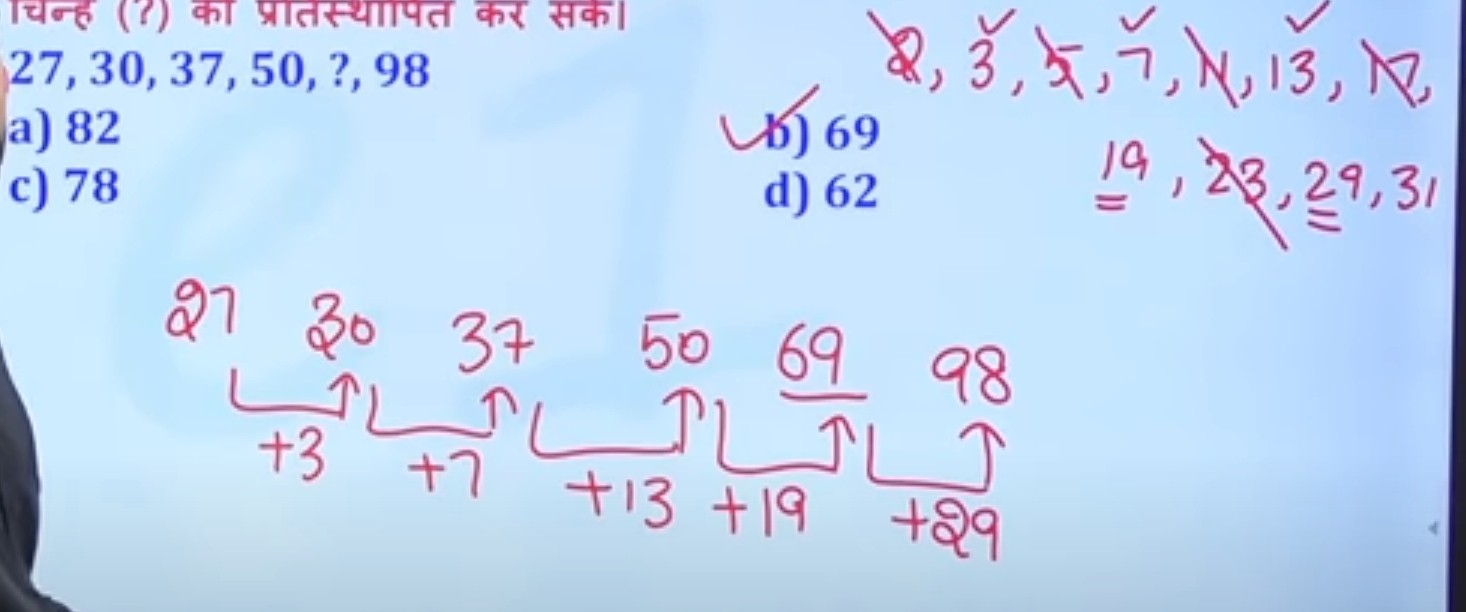 चिन्ह (?) को प्रतिस्थापित कर सके।
27, 30, 37, 50, ?, 98
a) 82
b) 69
c) 78
d) 62
2, 3, 5, 7, 11, 13, 17,
19, 23, 29, 31
27 30 37 50 69 98
+3 +7 +13 +19 +29